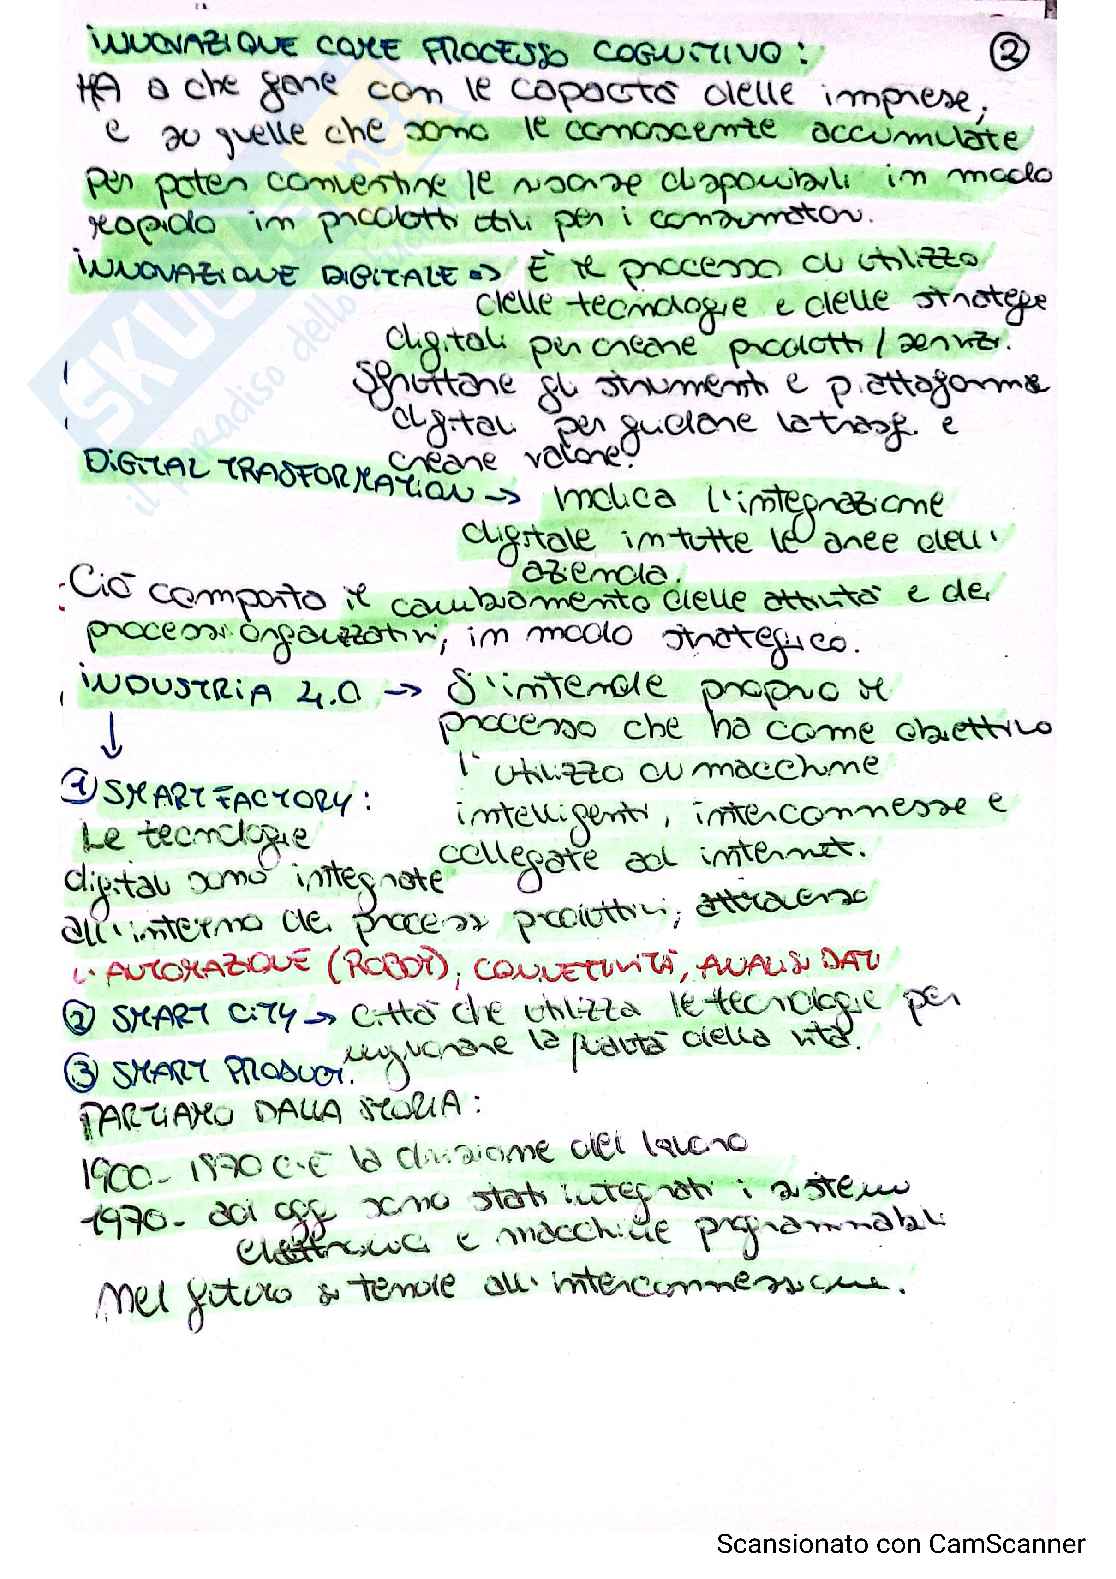 INNOVAZIONE COME PROCESSO COGNITIVO: 2
HA a che fare con le capacità delle imprese,
e su quelle che sono le conoscenze accumulate
per poter convertire le risorse disponibili in modo
rapido in prodotti utili per i consumatori.
INNOVAZIONE DIGITALE => È il processo di utilizzo
delle tecnologie e delle strategie
digitali per creare prodotti/servizi.
Sfruttare gli strumenti e piattaforme
digitali per guidare la trasf. e
creare valore.
DIGITAL TRASFORMATION -> indica l'integrazione
digitale in tutte le aree dell'
azienda.
Ciò comporta il cambiamento delle attività e dei
processi organizzativi, in modo strategico.
INDUSTRIA 4.0 -> S'intende proprio il
processo che ha come obiettivo
l'utilizzo di macchine
① SMART FACTORY:
intelligenti, interconnesse e
Le tecnologie
collegate ad internet.
digitali sono integrate
all'interno dei processi produttivi, attraverso
AUTOMAZIONE (ROBOT), CONNETTIVITÀ, ANALISI DATI
② SMART CITY -> città che utilizza le tecnologie per
migliorare la qualità della vita.
③ SMART PRODUCT.
PARTIAMO DALLA STORIA:
1900- 1970 c'è la divisione del lavoro
1970- ad oggi sono stati integrati i sistemi
elettronici e macchine programmabili
Nel futuro si tende all'interconnessione.
SKUOLA.net
il paradiso dello studente
Scansionato con CamScanner